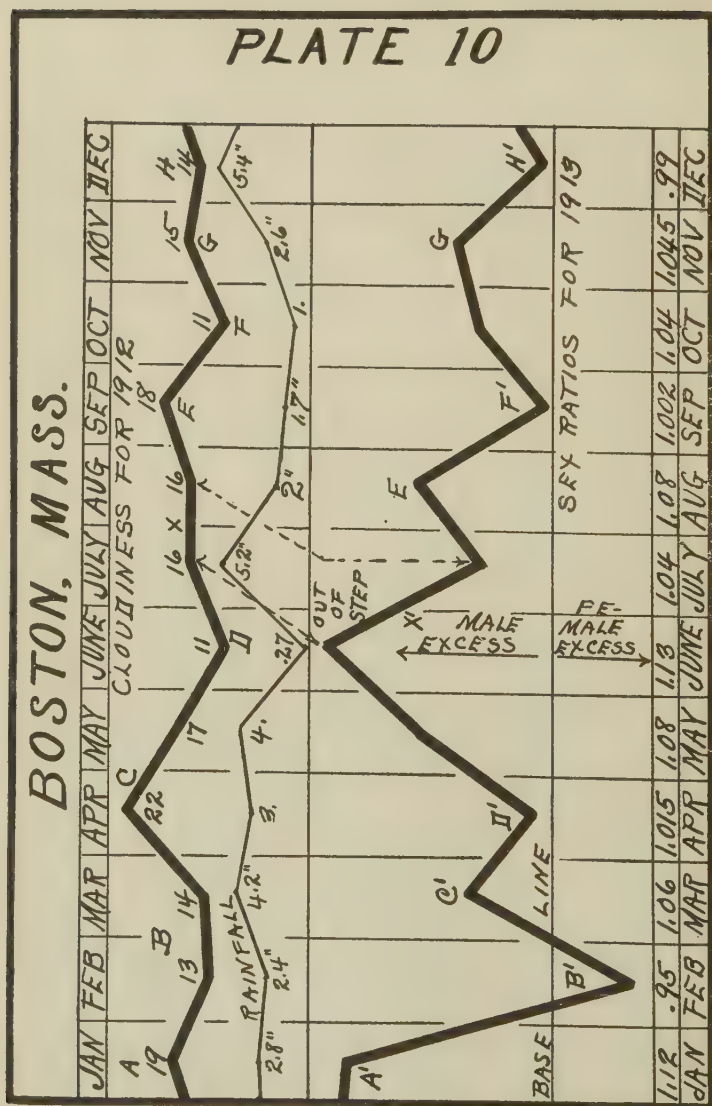 PLATE 10
BOSTON, MASS.
JAN FEB MAR APR MAY JUNE JULY AUG SEP OCT NOV DEC
CLOUDINESS FOR 1912
A B C D X E F G H
19 13 14 22 17 11 16 16 18 11 15 14
RAINFALL
2.8" 2.4" 4.2" 3. 4. .27 5.2" 2" 1.7" 1. 2.6" 5.4"
OUT
OF
STEP
A' B' C' D' X' E F' G H'
MALE
EXCESS
FE-
MALE
EXCESS
BASE LINE
SEX RATIOS FOR 1913
1.12 .95 1.06 1.015 1.08 1.13 1.04 1.08 1.002 1.04 1.045 .99
JAN FEB MAR APR MAY JUNE JULY AUG SEP OCT NOV DEC